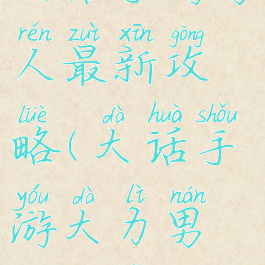 rén zuì xīn gōng
人最新攻
lüè dà huà shǒu
略(大话手
yóu dà lì nán
游大力男